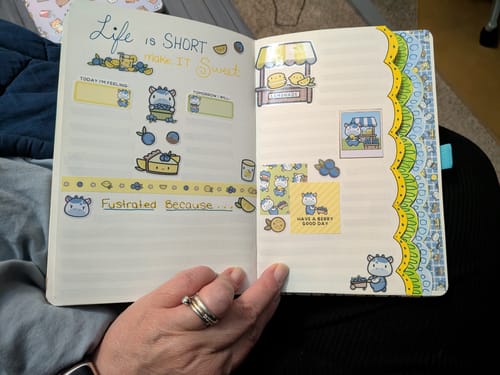 Life is SHORT
make IT Sweet
TODAY I'M FEELING
TOMORROW I WILL
Fustrated Because...
LEMONADE
HAVE A BERRY
GOOD DAY